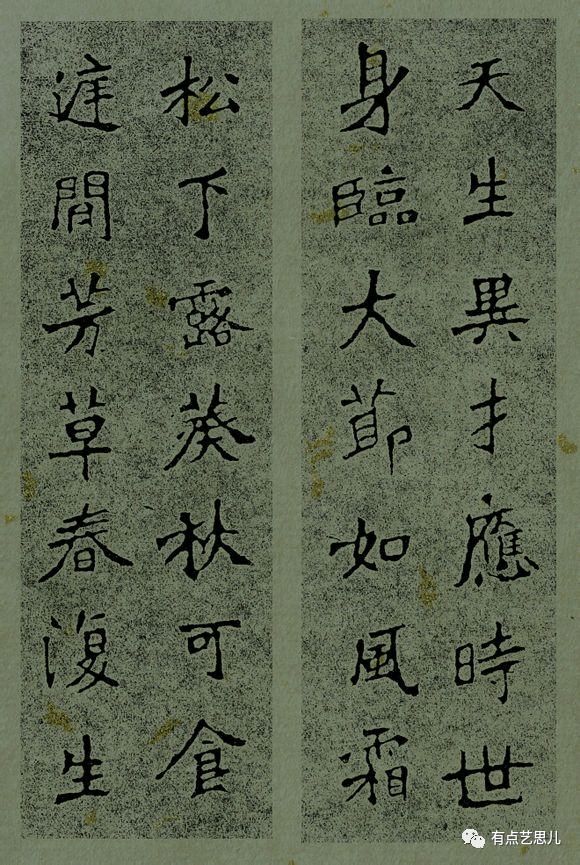 天生異才應時世
身臨大節如風霜
松下露葵秋可食
涯間芳草春復生
有点艺思儿